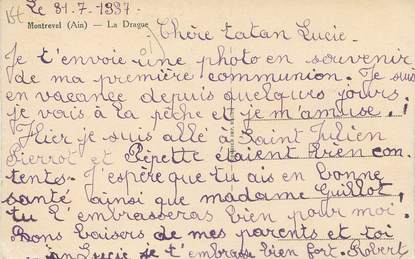 Le 31.7.1937.
Montrevel (Ain) - La Drague
Chère tatan Lucie.
Je t'envoie une photo en souvenir
de ma première communion. Je suis
en vacance depuis quelques jours,
je vais à la pêche et je m'amuse.
Hier je suis allé à Saint Julien
Pierrot et Pépette étaient bien con
tents. J'espère que tu ais en bonne
santé ainsi que madame Guillot,
tu l'embrasseras bien pour moi.
Bons baisers de mes parents et toi
Lucie je t'embrasse bien fort. Robert